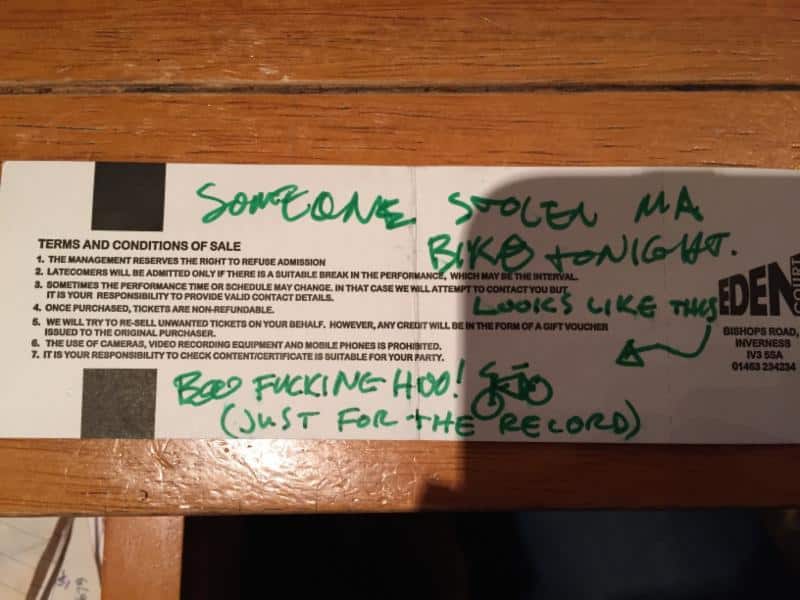 SOMEONE STOLEN MA
BIKE TONIGHT.
LOOKS LIKE THIS
TERMS AND CONDITIONS OF SALE
1. THE MANAGEMENT RESERVES THE RIGHT TO REFUSE ADMISSION
2. LATECOMERS WILL BE ADMITTED ONLY IF THERE IS A SUITABLE BREAK IN THE PERFORMANCE, WHICH MAY BE THE INTERVAL.
3. SOMETIMES THE PERFORMANCE TIME OR SCHEDULE MAY CHANGE. IN THAT CASE WE WILL ATTEMPT TO CONTACT YOU BUT
IT IS YOUR RESPONSIBILITY TO PROVIDE VALID CONTACT DETAILS.
4. ONCE PURCHASED, TICKETS ARE NON-REFUNDABLE.
5. WE WILL TRY TO RE-SELL UNWANTED TICKETS ON YOUR BEHALF. HOWEVER, ANY CREDIT WILL BE IN THE FORM OF A GIFT VOUCHER
ISSUED TO THE ORIGINAL PURCHASER.
6. THE USE OF CAMERAS, VIDEO RECORDING EQUIPMENT AND MOBILE PHONES IS PROHIBITED.
7. IT IS YOUR RESPONSIBILITY TO CHECK CONTENT/CERTIFICATE IS SUITABLE FOR YOUR PARTY.
BOO FUCKING HOO!
(JUST FOR THE RECORD)
EDEN
COURT
BISHOPS ROAD,
INVERNESS
IV3 5SA
01463 234234